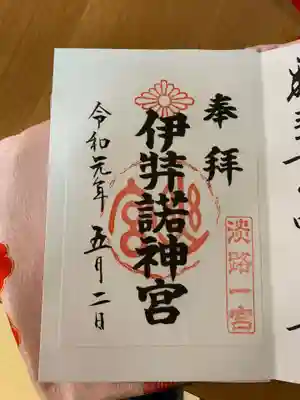 奉拝
淡路一宮
伊弉諾神宮
令和元年五月二日